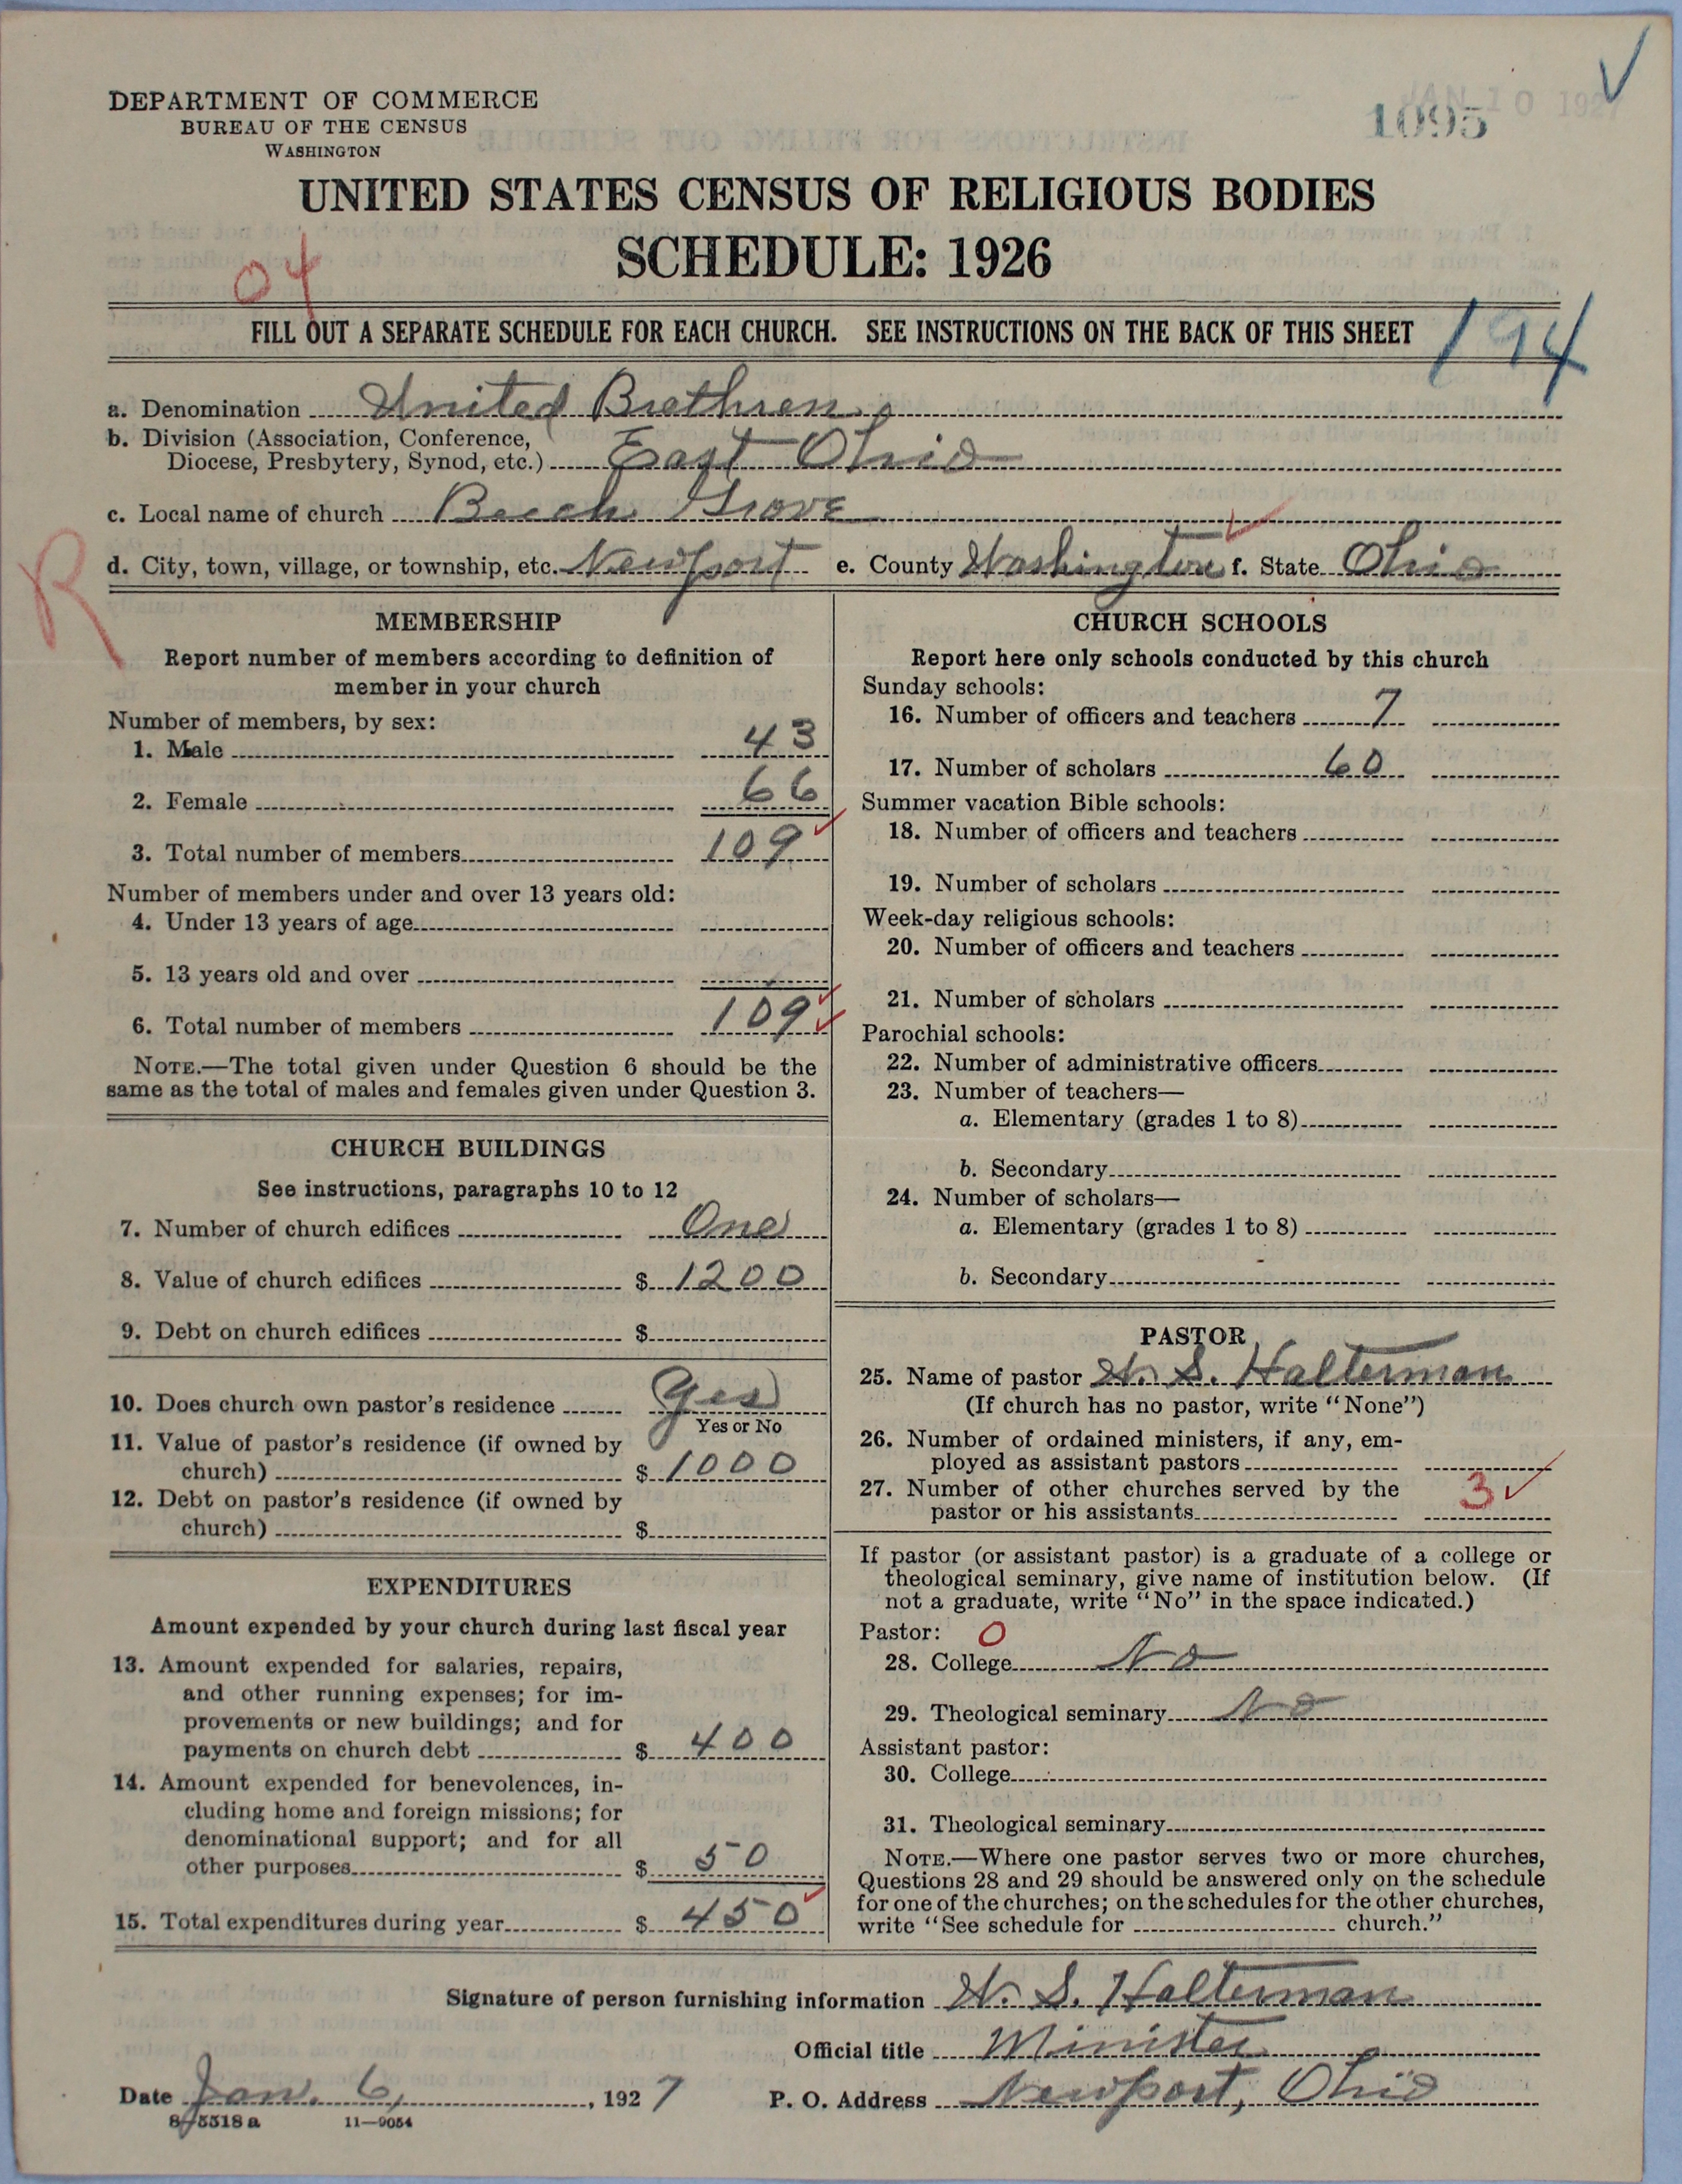 DEPARTMENT OF COMMERCE
BUREAU OF THE CENSUS
WASHINGTON
JAN 10 192
1095
UNITED STATES CENSUS OF RELIGIOUS BODIES
SCHEDULE: 1926
04
FILL OUT A SEPARATE SCHEDULE FOR EACH CHURCH. SEE INSTRUCTIONS ON THE BACK OF THIS SHEET
194
a. Denomination United Brethren
b. Division (Association, Conference,
Diocese, Presbytery, Synod, etc.) East Ohio
c. Local name of church Beech Grove
R
d. City, town, village, or township, etc. Newport e. County Washington f. State Ohio
MEMBERSHIP
Report number of members according to definition of
member in your church
Number of members, by sex:
1. Male 43
2. Female 66
3. Total number of members 109
Number of members under and over 13 years old:
4. Under 13 years of age
5. 13 years old and over
6. Total number of members 109
NOTE.—The total given under Question 6 should be the
same as the total of males and females given under Question 3.
CHURCH BUILDINGS
See instructions, paragraphs 10 to 12
7. Number of church edifices One
8. Value of church edifices $ 1200
9. Debt on church edifices $
10. Does church own pastor's residence Yes
Yes or No
11. Value of pastor's residence (if owned by
church) $ 1000
12. Debt on pastor's residence (if owned by
church) $
EXPENDITURES
Amount expended by your church during last fiscal year
13. Amount expended for salaries, repairs,
and other running expenses; for im-
provements or new buildings; and for
payments on church debt $ 400
14. Amount expended for benevolences, in-
cluding home and foreign missions; for
denominational support; and for all
other purposes $ 50
15. Total expenditures during year $ 450
CHURCH SCHOOLS
Report here only schools conducted by this church
Sunday schools:
16. Number of officers and teachers 7
17. Number of scholars 60
Summer vacation Bible schools:
18. Number of officers and teachers
19. Number of scholars
Week-day religious schools:
20. Number of officers and teachers
21. Number of scholars
Parochial schools:
22. Number of administrative officers
23. Number of teachers—
a. Elementary (grades 1 to 8)
b. Secondary
24. Number of scholars—
a. Elementary (grades 1 to 8)
b. Secondary
PASTOR
25. Name of pastor W. S. Halterman
(If church has no pastor, write "None")
26. Number of ordained ministers, if any, em-
ployed as assistant pastors
27. Number of other churches served by the
pastor or his assistants 3
If pastor (or assistant pastor) is a graduate of a college or
theological seminary, give name of institution below. (If
not a graduate, write "No" in the space indicated.)
Pastor: 0
28. College No
29. Theological seminary No
Assistant pastor:
30. College
31. Theological seminary
NOTE.—Where one pastor serves two or more churches,
Questions 28 and 29 should be answered only on the schedule
for one of the churches; on the schedules for the other churches,
write "See schedule for church."
Signature of person furnishing information W. S. Halterman
Official title Minister
Date Jan. 6, 1927 P. O. Address Newport, Ohio
8-5518a 11—9054